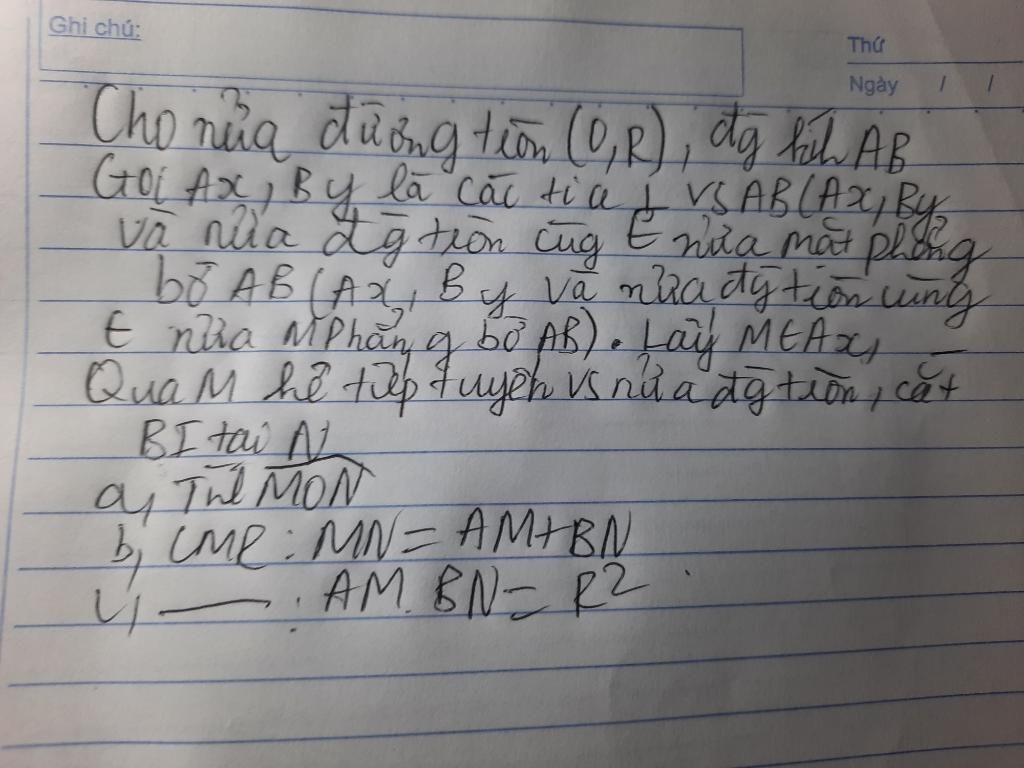 Ghi chú:
Thứ
Ngày / /
Cho nửa đường tròn (O,R), đg kíh AB
Gọi Ax, By là các tia ⊥ vs AB (Ax, By
và nửa đg tròn cùg ∈ nửa mặt phẳng
bờ AB (Ax, By và nửa đg tròn cùng
∈ nửa Mphẳng bờ AB). Lấy M∈Ax,
Qua M kẻ tiếp tuyến vs nửa đg tròn, cắt
BI tại N
a, Tíh MON
b, CMR: MN = AM+BN
c, ——— : AM. BN = R²